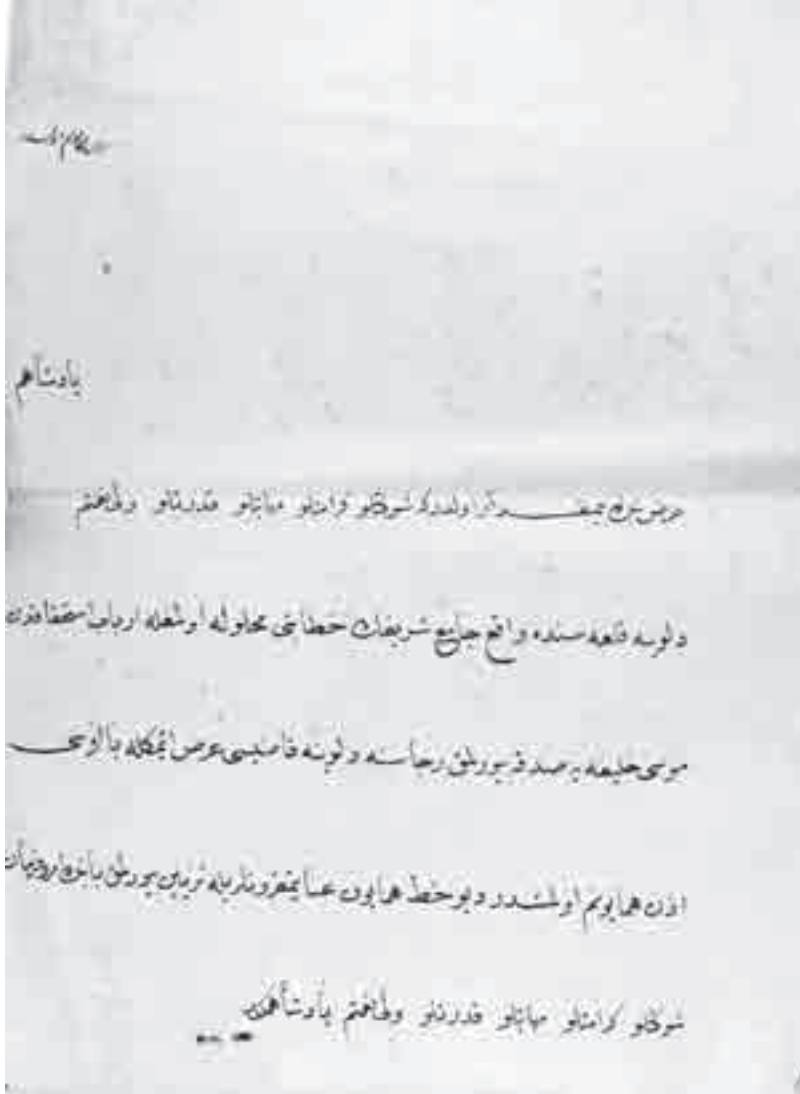 پادشاهم
عرض بنده بیمقدار اولدرکه شوکتلو کرامتلو مهابتلو قدرتلو ولینعمتم
دلونه قلعه سنده واقع جامع شریفك خطابتی محلوله اولمغله ارباب استحقاقدن
موسی خلیفه یه صدقه بیورلمق رجاسنه دلونه قاضیسی عرض ایتمکله بالاسی
اذن همایونم اولمشدر دیو خط همایون عنایتمقرونلریله تزیین بیورلمق بابنده فرمان
شوکتلو کرامتلو مهابتلو قدرتلو ولینعمتم پادشاهمکدر